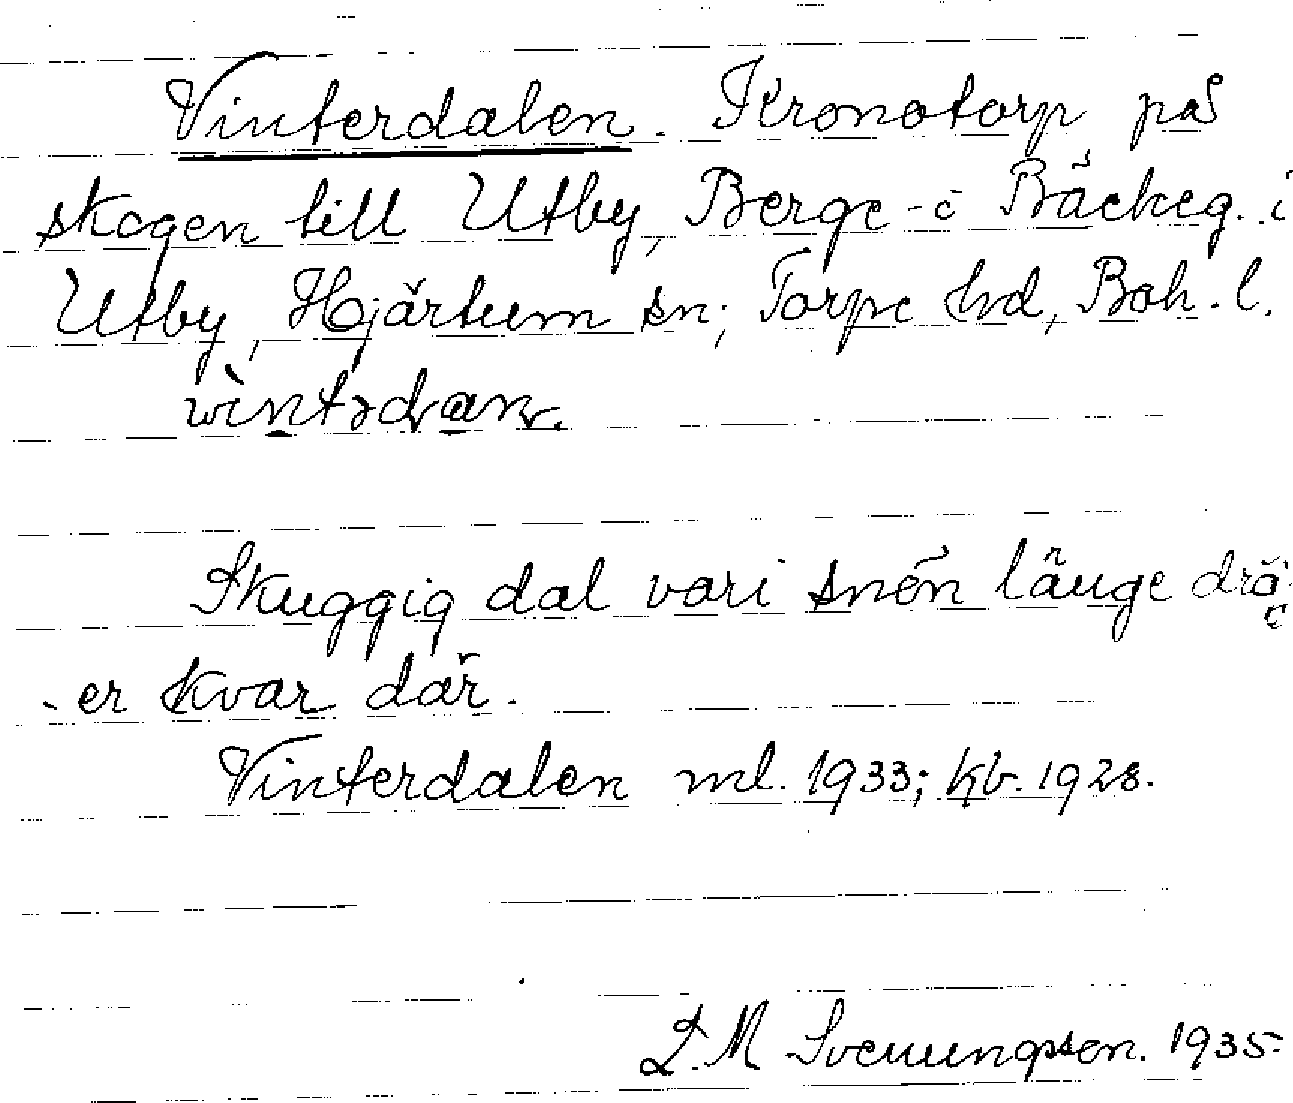 Vinterdalen. Kronotorp på
skogen till Utby, Berge-o Bäckeg. i
Utby, Hjärtum sn; Torpe hd, Boh. l.
Skuggig dal vari snön länge drö
-er kvar där.
Vinterdalen ml. 1933; kb. 1928.
L. M Svenungsson. 1935.